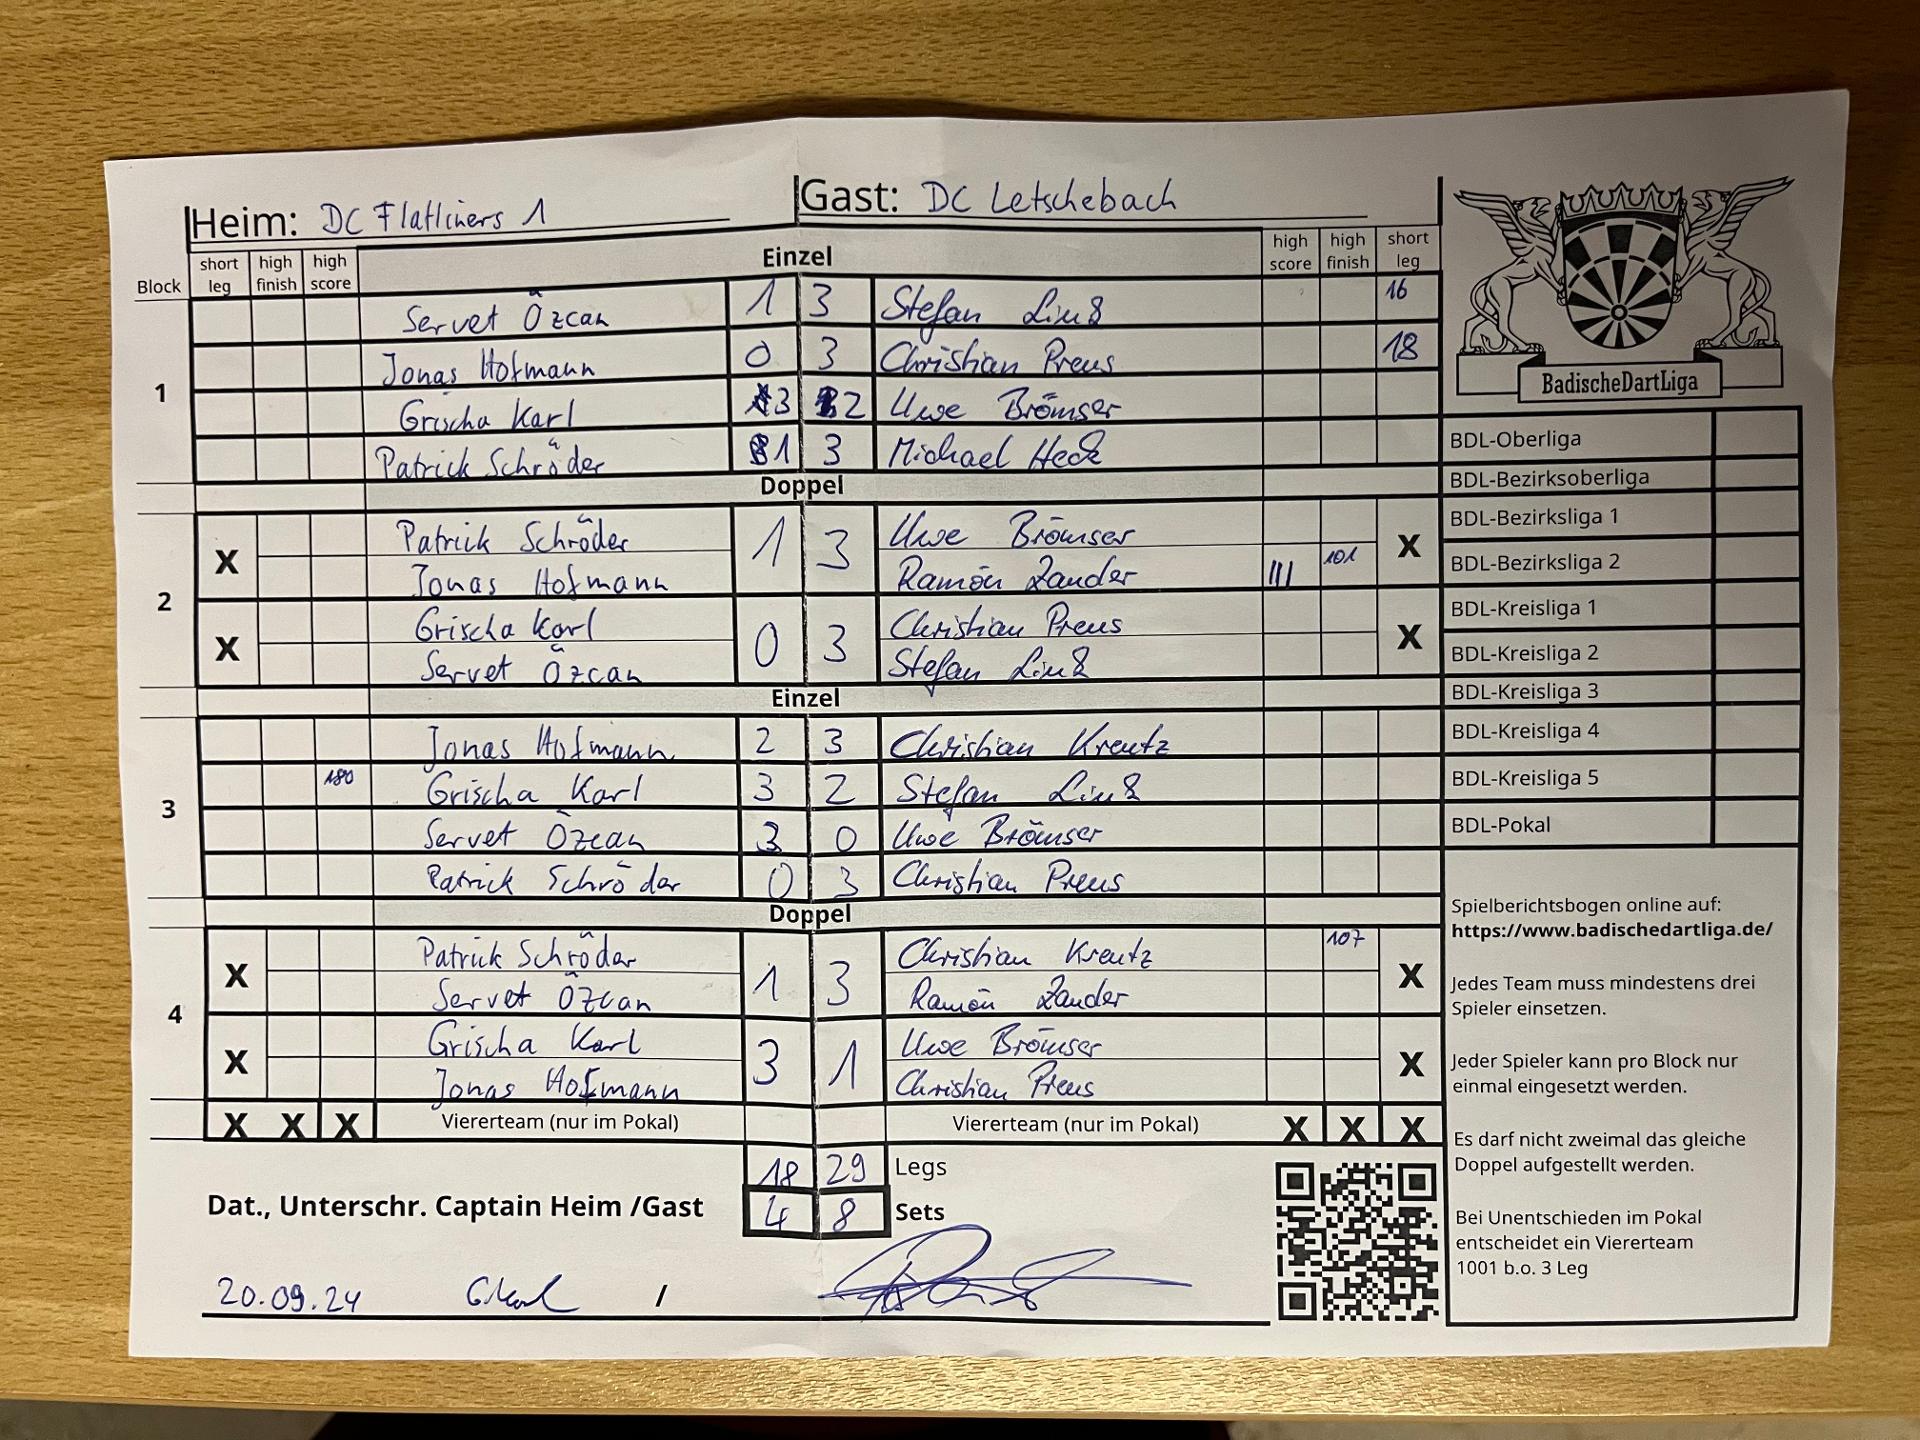 Heim: DC Flatliners 1 Gast: DC Letschebach
Block short leg high finish high score Einzel high score high finish short leg
1
Servet Özcan 1 3 Stefan Linß 16
Jonas Hofmann 0 3 Christian Preus 18
Grischa Karl 3 2 Uwe Brömser
Patrick Schröder 1 3 Michael Heck
Doppel
2
X Patrick Schröder 1 3 Uwe Brömser X
Jonas Hofmann Ramón Zander III 101
X Grischa Karl 0 3 Christian Preus X
Servet Özcan Stefan Linß
Einzel
3
Jonas Hofmann 2 3 Christian Kreutz
180 Grischa Karl 3 2 Stefan Linß
Servet Özcan 3 0 Uwe Brömser
Patrick Schröder 0 3 Christian Preus
Doppel
4
X Patrick Schröder 1 3 Christian Kreutz 107 X
Servet Özcan Ramón Zander
X Grischa Karl 3 1 Uwe Brömser X
Jonas Hofmann Christian Preus
X X X Viererteam (nur im Pokal) Viererteam (nur im Pokal) X X X
18 29 Legs
Dat., Unterschr. Captain Heim /Gast 4 8 Sets
20.09.24 G.Karl /
BadischeDartLiga
BDL-Oberliga
BDL-Bezirksoberliga
BDL-Bezirksliga 1
BDL-Bezirksliga 2
BDL-Kreisliga 1
BDL-Kreisliga 2
BDL-Kreisliga 3
BDL-Kreisliga 4
BDL-Kreisliga 5
BDL-Pokal
Spielberichtsbogen online auf:
https://www.badischedartliga.de/
Jedes Team muss mindestens drei
Spieler einsetzen.
Jeder Spieler kann pro Block nur
einmal eingesetzt werden.
Es darf nicht zweimal das gleiche
Doppel aufgestellt werden.
Bei Unentschieden im Pokal
entscheidet ein Viererteam
1001 b.o. 3 Leg